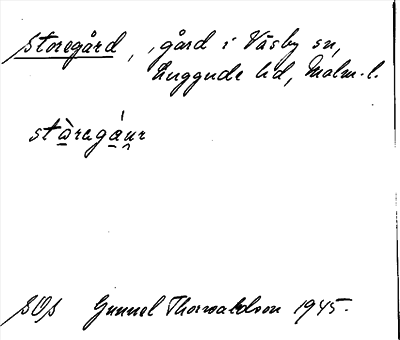 Storegård, gård i Väsby sn,
Luggude hd, Malm. l.
stàregáur
SOS Gunnel Thorwaldson 1945.